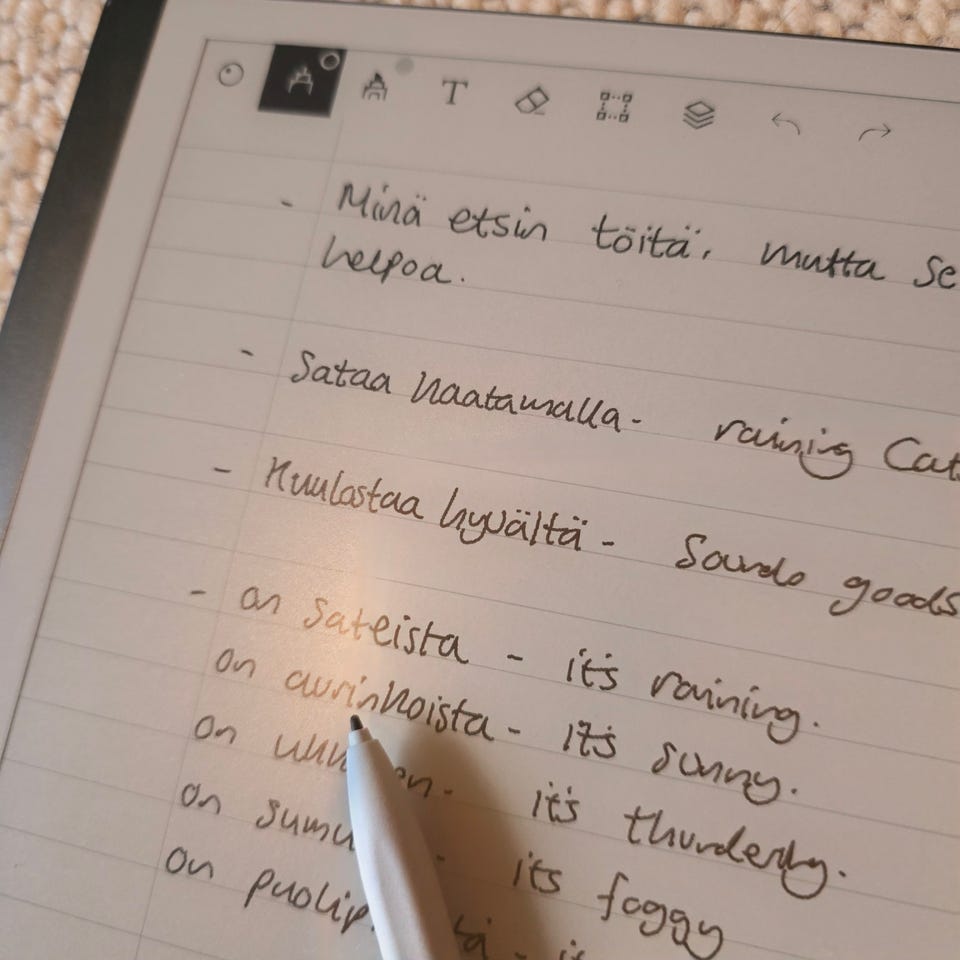 T
- Minä etsin töitä, mutta se
helpoa.
- Sataa kaatamalla - raining Cats
- Kuulostaa hyvältä - Sounds goods
- on sateista - it's raining.
on aurinkoista - it's sunny.
on - it's thunderly.
on - its foggy
on